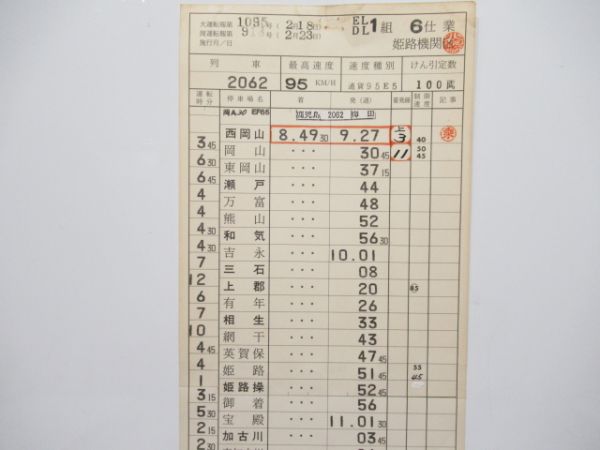 大運転報第1095号(2月18日)
EL
DL 1組 6仕業
姫路機関区
施行月/日
列車 最高速度 速度種別 けん引定数
2062 95 KM/H 通貨95E5 100両
運転時分 停車場名 着 発(通) 着発線 制限速度 記事
鹿児島 2062 梅田
西岡山 8.49 30 9.27 上3 40 乗
3 45 岡山 ・・・ 30 45 11 50 45
6 30 東岡山 ・・・ 37 15
6 45 瀬戸 ・・・ 44
4 万富 ・・・ 48
4 熊山 ・・・ 52
4 30 和気 ・・・ 56 30
4 30 吉永 ・・・ 10.01
7 三石 ・・・ 08
12 上郡 ・・・ 20 85
6 有年 ・・・ 26
7 相生 ・・・ 33
10 網干 ・・・ 43
4 45 英賀保 ・・・ 47 45
4 姫路 ・・・ 51 45
1 姫路操 ・・・ 52 45
3 15 御着 ・・・ 56
5 30 宝殿 ・・・ 11.01 30
2 15 加古川 ・・・ 03 45